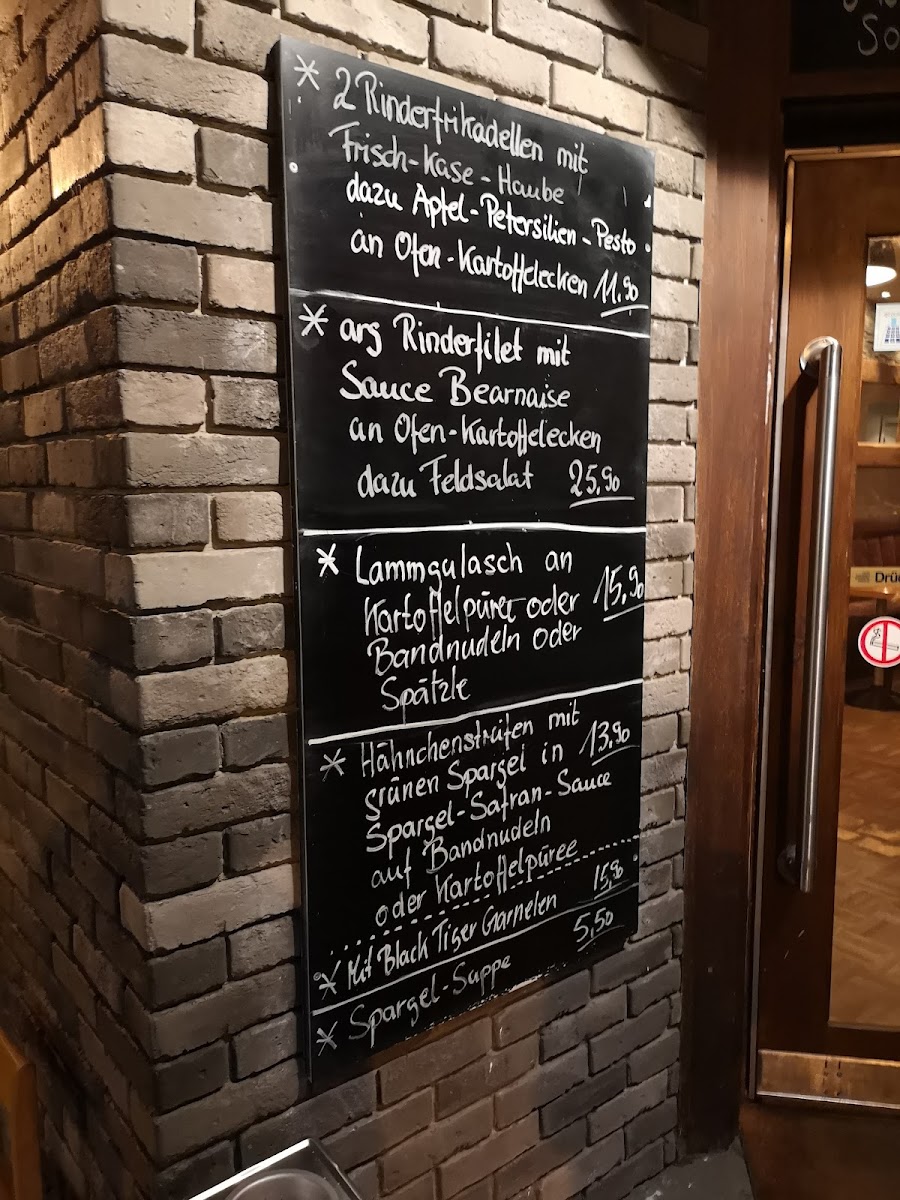 * 2 Rinderfrikadellen mit
Frisch-Käse-Haube
dazu Apfel-Petersilien-Pesto
an Ofen-Kartoffelecken 11,90
* arg Rinderfilet mit
Sauce Bearnaise
an Ofen-Kartoffelecken
dazu Feldsalat 25,90
* Lammgulasch an
Kartoffelpüree oder 15,90
Bandnudeln oder
Spätzle
* Hähnchenstreifen mit
grünen Spargel in 13,90
Spargel-Safran-Sauce
auf Bandnudeln
oder Kartoffelpüree
* Mit Black Tiger Garnelen 15,90
* Spargel-Suppe 5,50
So
Drü